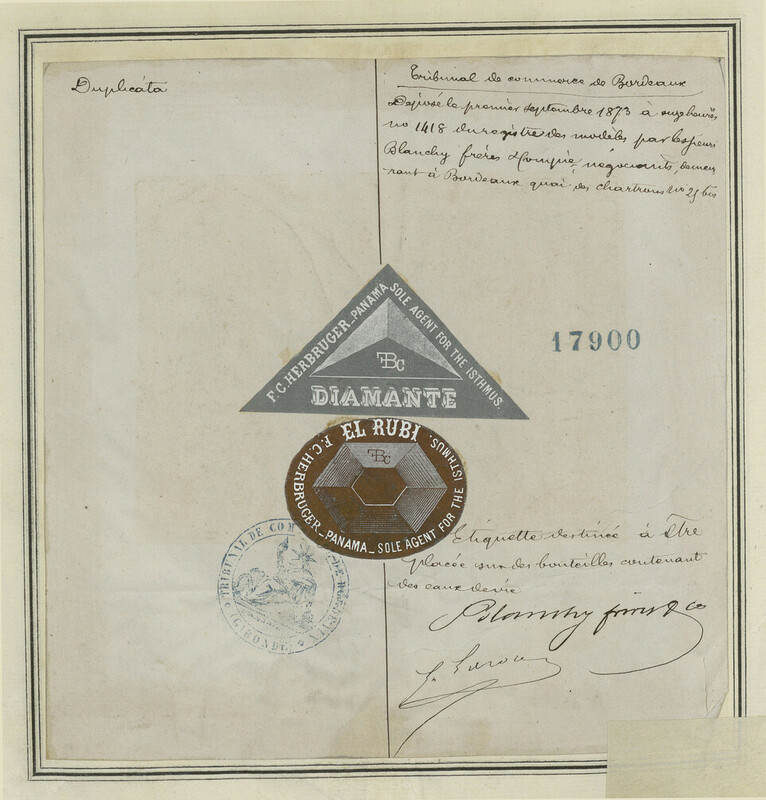 Duplicata
Tribunal de commerce de Bordeaux
Déposé le premier septembre 1873 à onze heures
no 1418 du registre des modèles par les sieurs
Blanchy frères & Compie, négociants, demeu
rant à Bordeaux quai des chartrons no 25 bis
F.C. HERBRUGER_PANAMA SOLE AGENT FOR THE ISTHMUS.
TBC
DIAMANTE
17900
EL RUBI
TBC
F.C. HERBRUGER_PANAMA_SOLE AGENT FOR THE ISTHMUS.
Etiquette destinée à être
placée sur des bouteilles contenant
des eaux de vie
Blanchy frères & co
TRIBUNAL DE COM DE BORDEAUX
(GIRONDE)